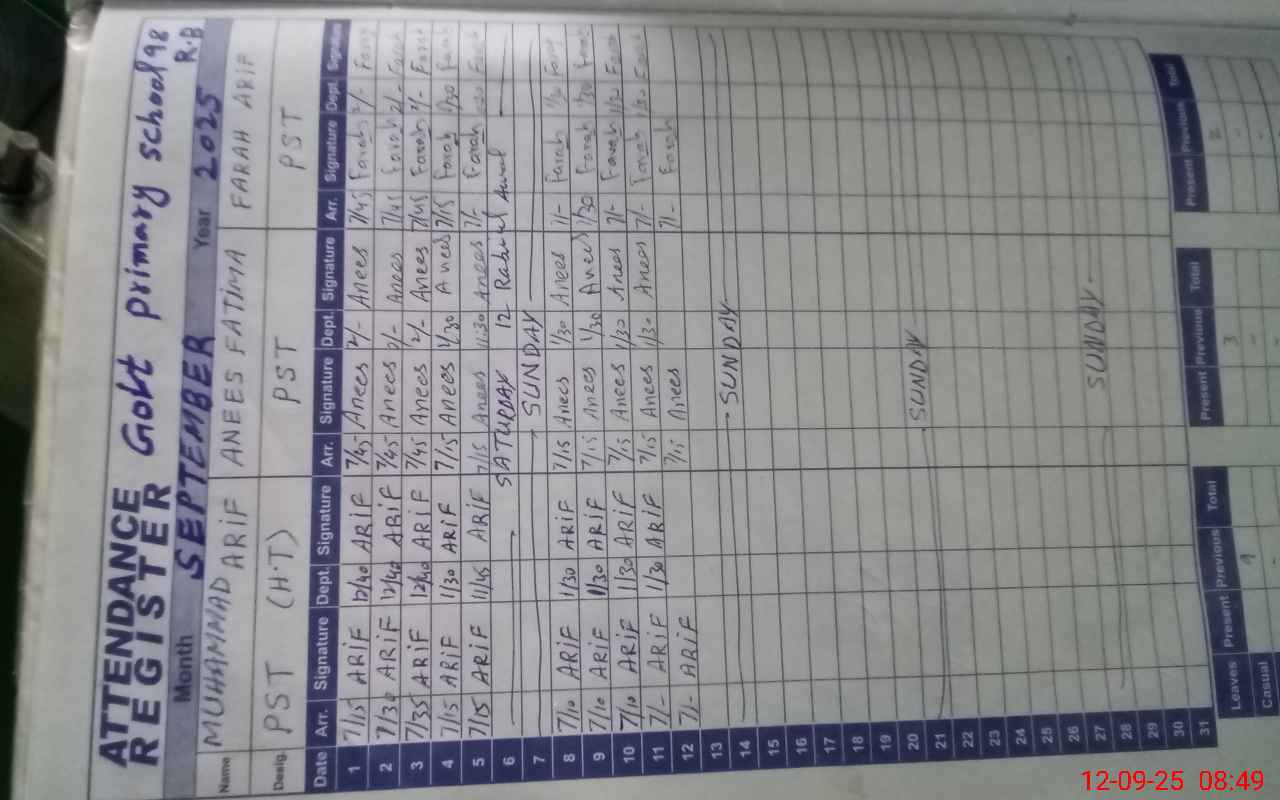 ATTENDANCE REGISTER Govt primary school 98 R.B
Month SEPTEMBER Year 2025
Name MUHAMMAD ARiF ANEES FATIMA FARAH ARIF
Desig. PST (H.T) PST PST
Date Arr. Signature Dept. Signature Arr. Signature Dept. Signature Arr. Signature Dept. Signature
1 7/15 ARiF 12/40 ARiF 7/45 Anees 2/- Anees 7/45 Farah 2/- Farah
2 7/30 ARiF 12/40 ARiF 7/45 Anees 2/- Anees 7/45 Farah 2/- Farah
3 7/35 ARiF 12/40 ARiF 7/45 Anees 2/- Anees 7/45 Farah 2/- Farah
4 7/15 ARiF 1/30 ARiF 7/15 Anees 1/30 Anees 7/15 Farah 1/30 Farah
5 7/15 ARiF 11/45 ARiF 7/15 Anees 11:30 Anees 7/- Farah Farah
6 SATURDAY 12 Rabiul Awal
7 SUNDAY
8 7/10 ARiF 1/30 ARiF 7/15 Anees 1/30 Anees 7/- Farah 1/30 Farah
9 7/10 ARiF 1/30 ARiF 7/15 Anees 1/30 Anees 7/30 Farah 1/30 Farah
10 7/10 ARiF 1/30 ARiF 7/15 Anees 1/30 Anees 7/- Farah 1/30 Farah
11 7/- ARiF 1/30 ARiF 7/15 Anees 1/30 Anees 7/- Farah 1/30 Farah
12 7/- ARiF 7/15 Anees 7/- Farah
13
14 SUNDAY
15
16
17
18
19
20
21 SUNDAY
22
23
24
25
26
27
28 SUNDAY
29
30
31
Leaves Present Previous Total Present Previous Total Present Previous Total
Casual 9 - 3 - 2 -
12-09-25 08:49